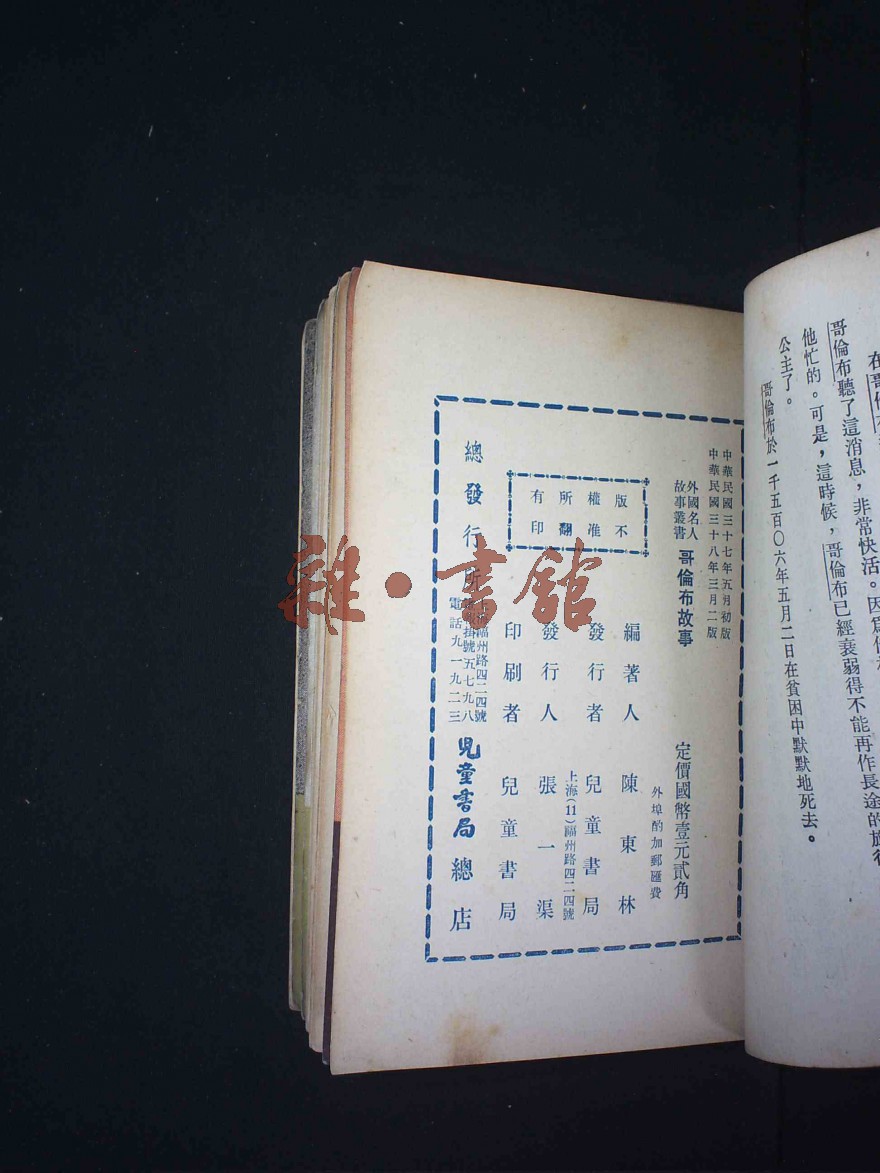 哥倫布聽了這消息，非常快活。因爲
他忙的。可是，這時候，哥倫布已經衰弱得不能再作長途的旅行
公主了。
哥倫布於一千五百〇六年五月二日在貧困中默默地死去。
中華民國三十七年五月初版
中華民國三十八年三月二版
外國名人
故事叢書
哥倫布故事
定價國幣壹元貳角
外埠酌加郵匯費
版權所有
不准翻印
編著人 陳東林
發行者 兒童書局
上海(11)福州路四二四號
發行人 張一渠
印刷者 兒童書局
總發行所
福州路四二四號
掛號五七九八
電話九一九二三
兒童書局總店
雜·書館